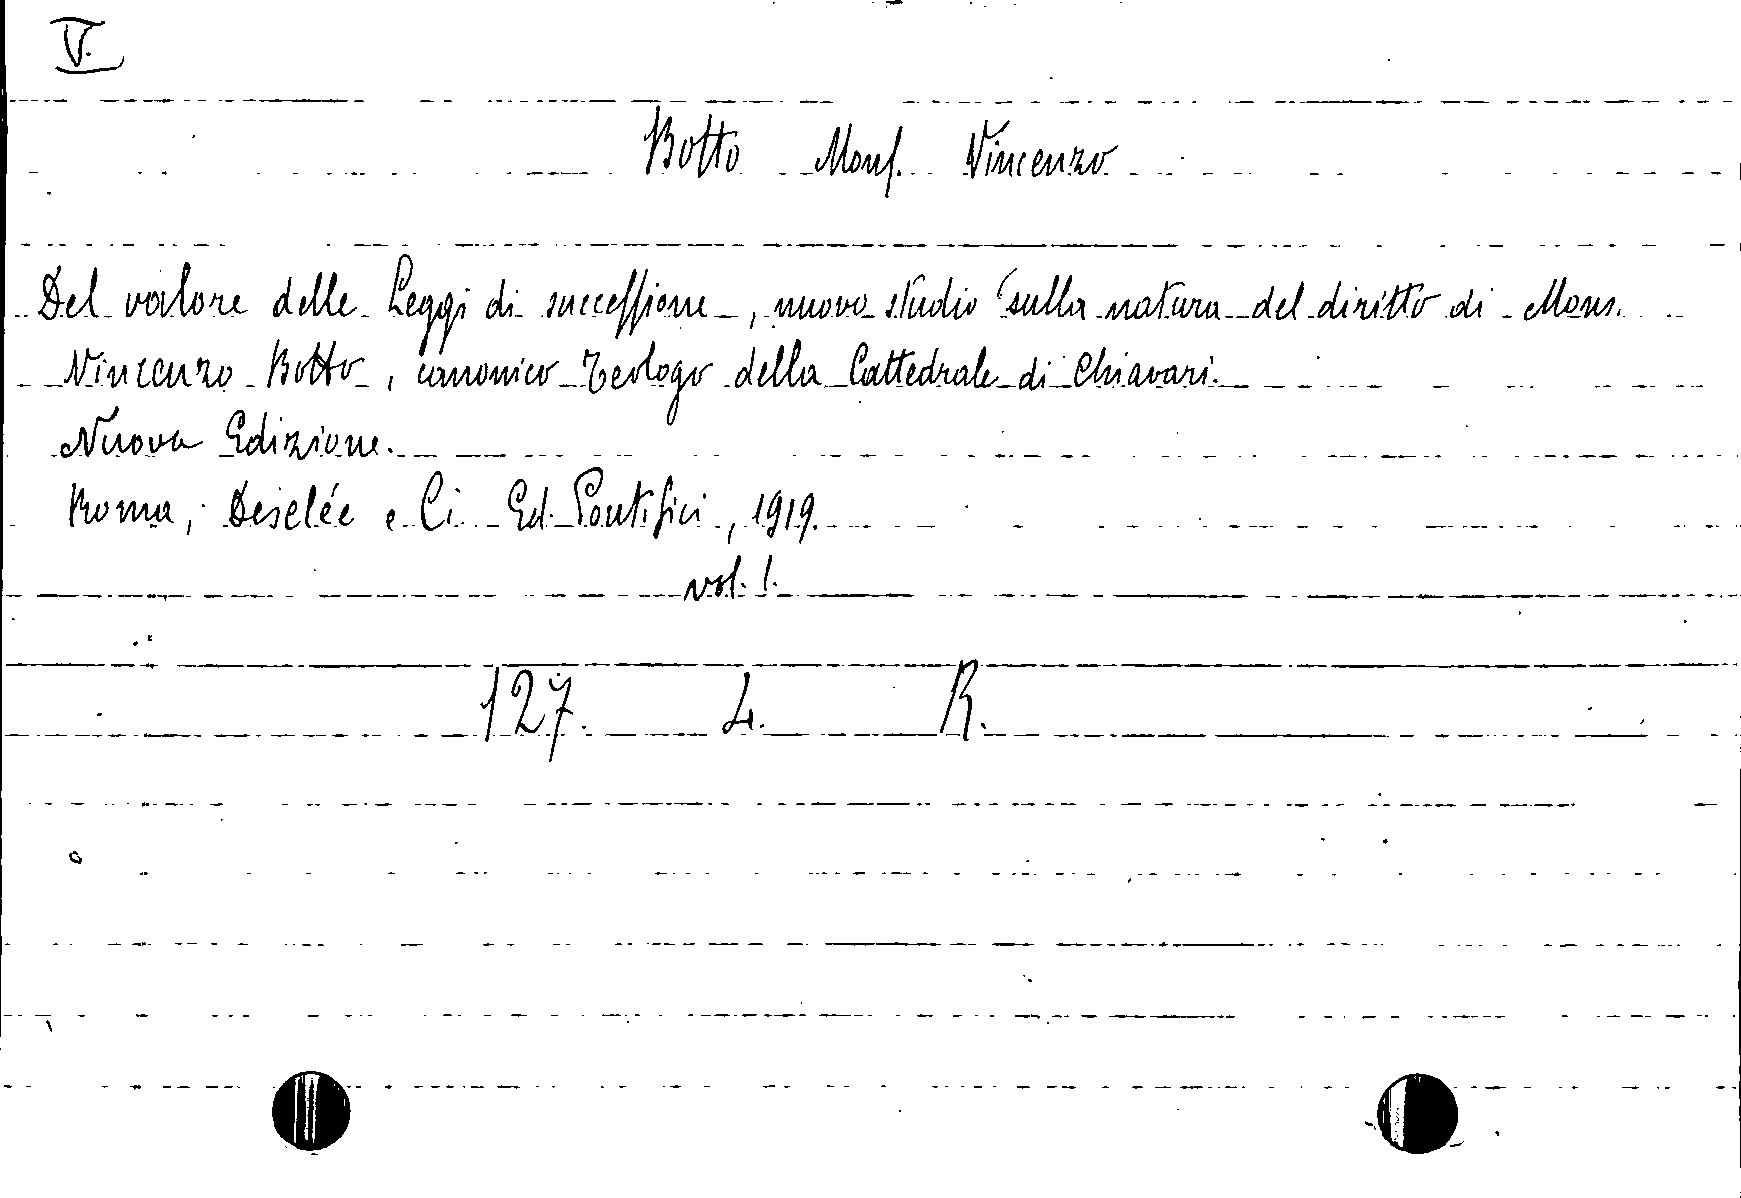 V.
Botto Mons. Vincenzo
Del valore delle Leggi di successione, nuovo studio sulla natura del diritto di Mons.
Vincenzo Botto, canonico Teologo della Cattedrale di Chiavari.
Nuova Edizione.
Roma, Desclée e Ci Ed. Pontifici, 1919.
vol. 1.
127. L. R.